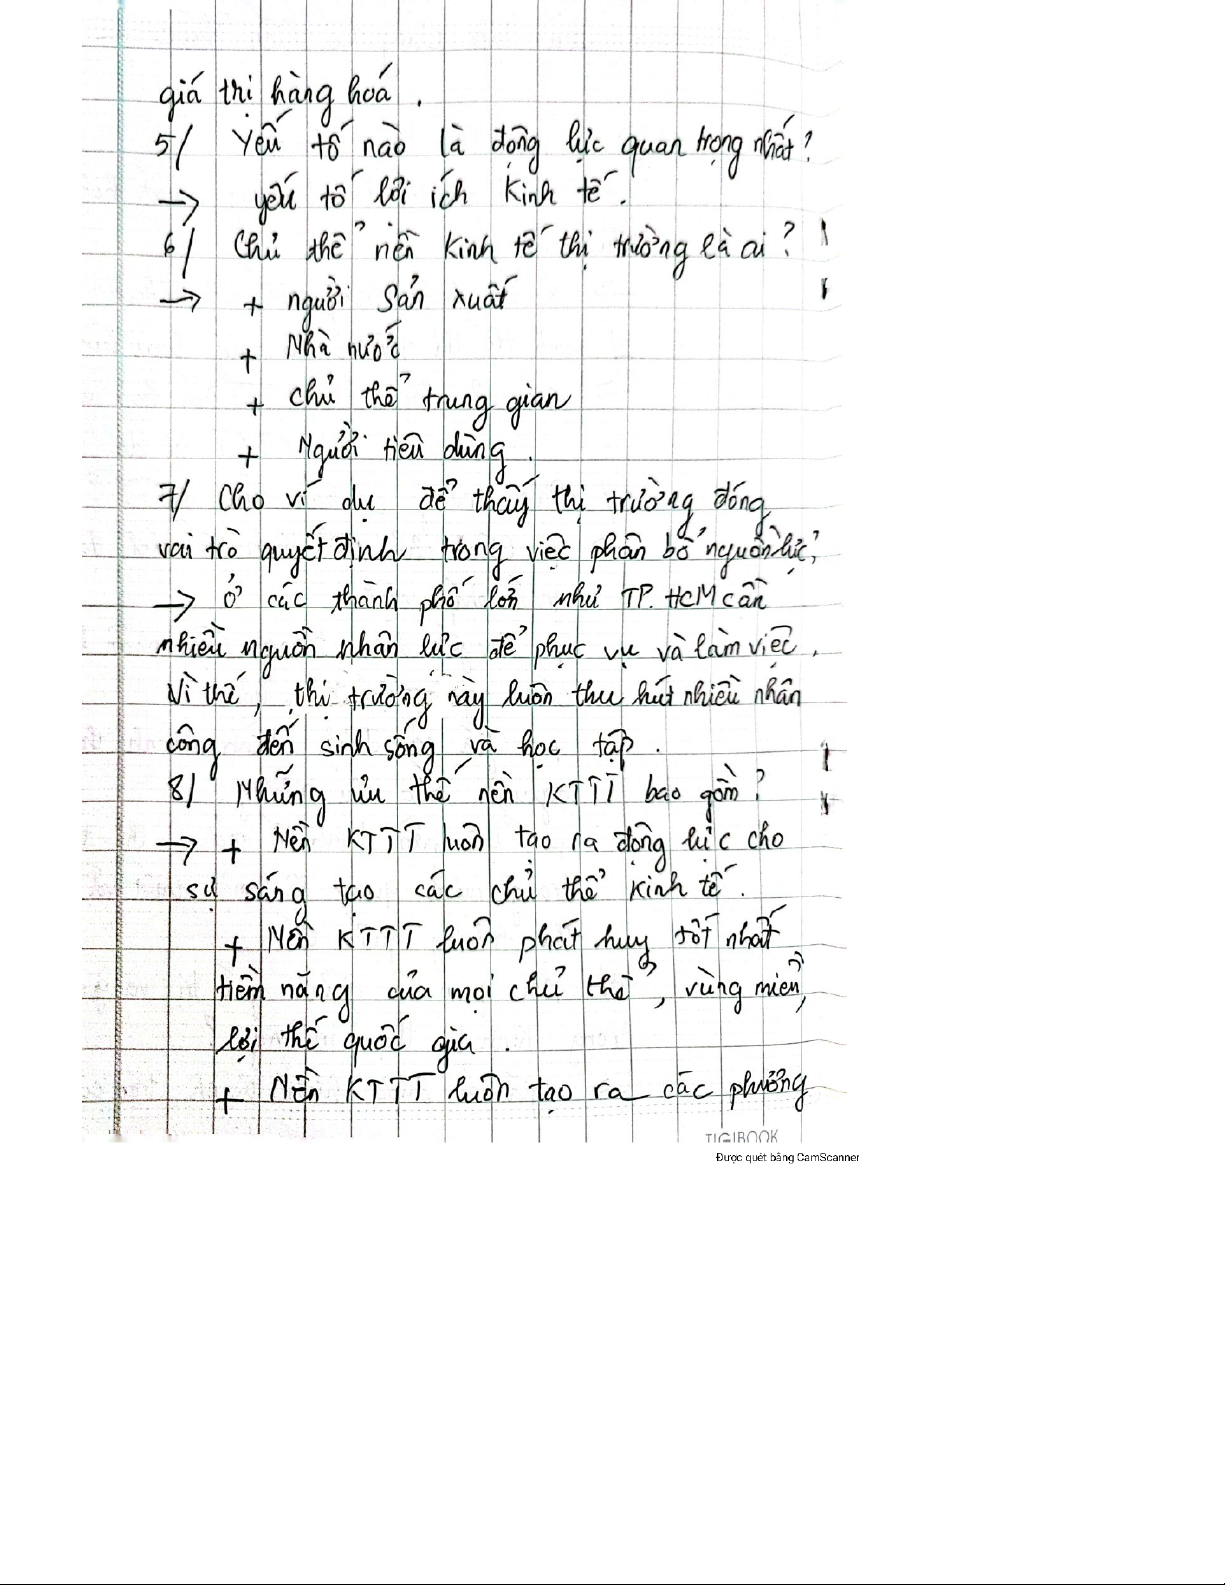 giá thị hàng hoá.
5/ Yếu tố nào là động lực quan trọng nhất?
→ yếu tố lợi ích Kinh tế.
6/ Chủ thể nền Kinh tế thị trường là ai?
→ + người Sản xuất
+ Nhà nước
+ chủ thể trung gian
+ Người tiêu dùng.
7/ Cho ví dụ để thấy thị trường đóng
vai trò quyết định trong việc phân bổ nguồn lực?
→ Ở các thành phố lớn như TP. HCM cần
nhiều nguồn nhân lực để phục vụ và làm việc.
Vì thế, thị trường này luôn thu hút nhiều nhân
công đến sinh sống và học tập.
8/ Những ưu thế nền KTTT bao gồm?
→ + Nền KTTT luôn tạo ra động lực cho
sự sáng tạo các chủ thể kinh tế.
+ Nền KTTT luôn phát huy tốt nhất
tiềm năng của mọi chủ thể, vùng miền,
lợi thế quốc gia.
+ Nền KTTT luôn tạo ra các phương
TIGIBOOK
Được quét bằng CamScanner